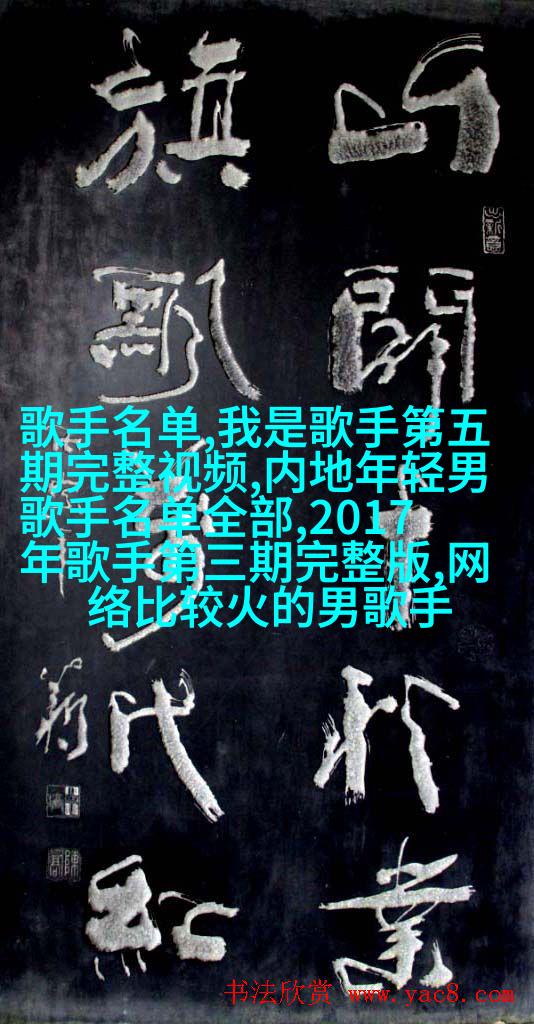 山開千秋業
旗
代紅
歌手名单,我是歌手第五
期完整视频,内地年轻男
歌手名单全部,2017
年歌手第三期完整版,网
络比较火的男歌手
书法欣赏 www.yac8.com